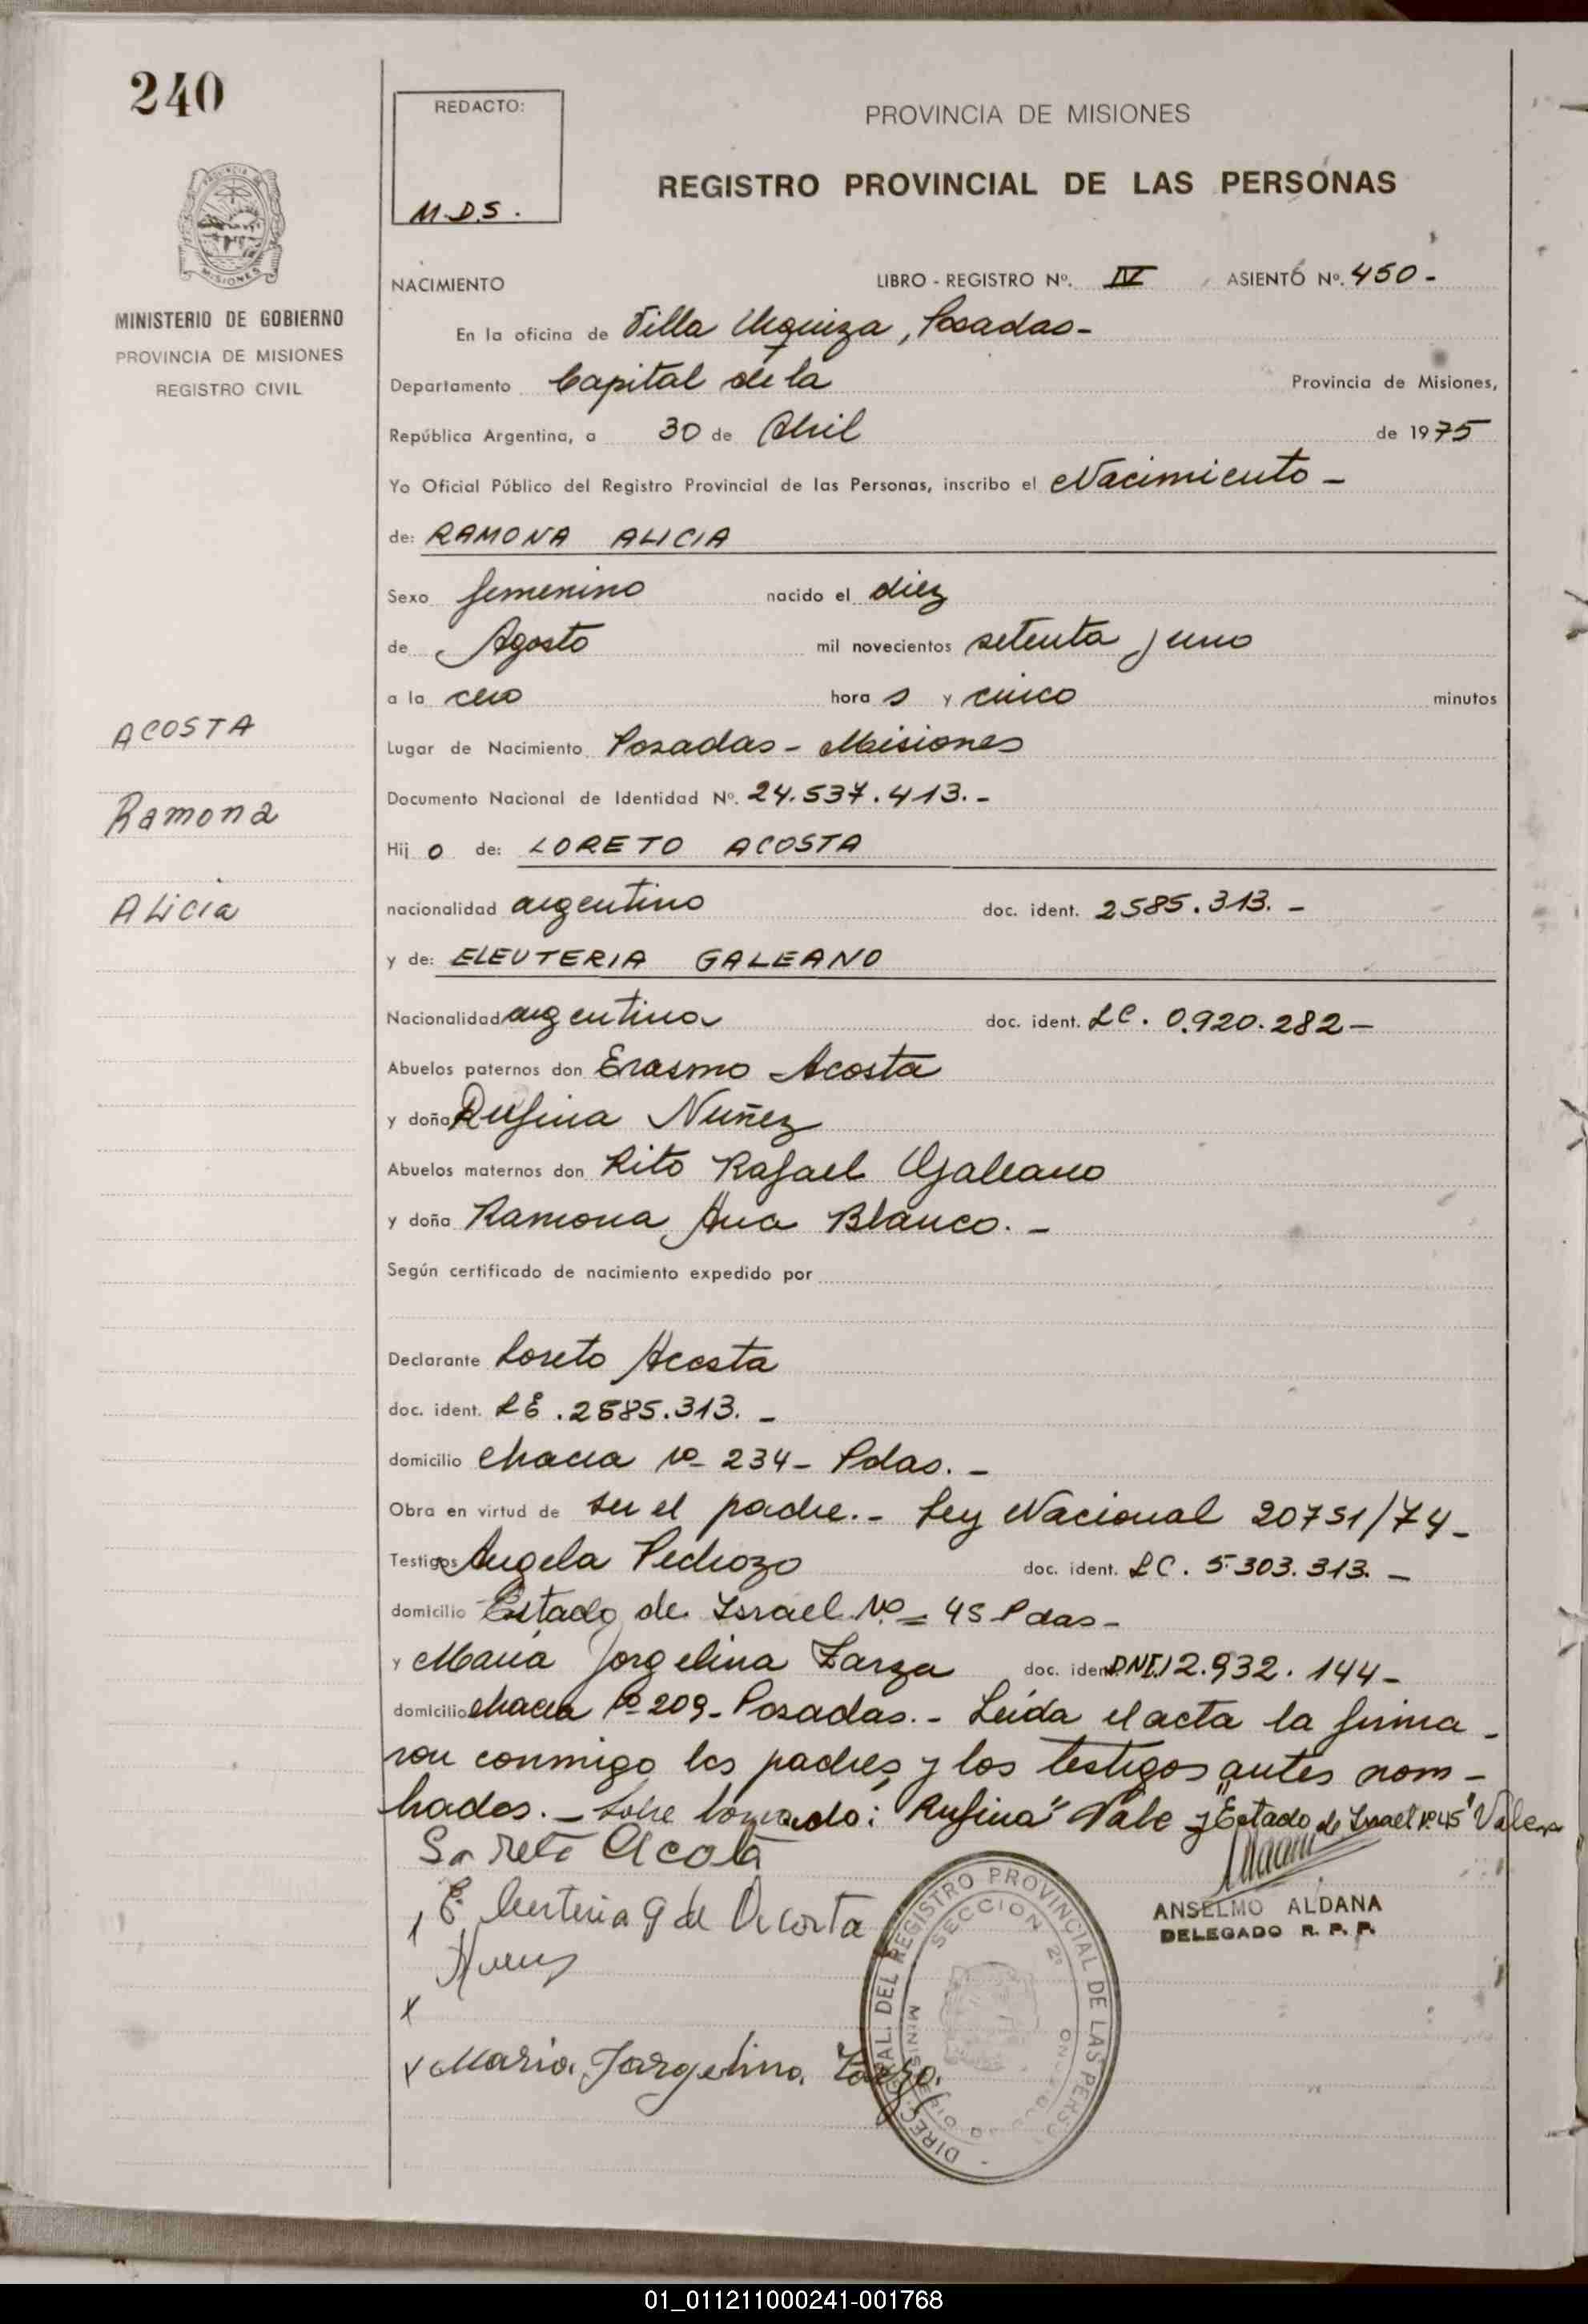 240
REDACTO:
M.D.S.
PROVINCIA DE MISIONES
REGISTRO PROVINCIAL DE LAS PERSONAS
MINISTERIO DE GOBIERNO
PROVINCIA DE MISIONES
REGISTRO CIVIL
NACIMIENTO LIBRO - REGISTRO Nº. IV ASIENTO Nº. 450 -
En la oficina de Villa Urquiza, Posadas-
Departamento Capital de la Provincia de Misiones,
República Argentina, a 30 de Abril de 1975
Yo Oficial Público del Registro Provincial de las Personas, inscribo el Nacimiento -
de: RAMONA ALICIA
Sexo femenino nacido el diez
de Agosto mil novecientos setenta y uno
a la cero hora s y cinco minutos
ACOSTA
Ramona
ALicia
Lugar de Nacimiento Posadas - Misiones
Documento Nacional de Identidad Nº. 24.537.413.-
Hij o de: LORETO ACOSTA
nacionalidad argentino doc. ident. 2585.313. -
y de: ELEUTERIA GALEANO
Nacionalidad argentina doc. ident. LC. 0.920.282-
Abuelos paternos don Erasmo Acosta
y doña Rufina Nuñez
Abuelos maternos don Rito Rafael Galeano
y doña Ramona Ana Blanco. -
Según certificado de nacimiento expedido por
Declarante Loreto Acosta
doc. ident. LE .2585.313. -
domicilio chacra Nº 234- Pdas. -
Obra en virtud de ser el padre.- Ley Nacional 20751/74-
Testigos Angela Pedrozo doc. ident. LC. 5.303.313. -
domicilio Estado de Israel Nº 45 Pdas-
y Maria Jorgelina Zarza doc. iden DNI.12.932.144-
domicilio chacra Nº 209- Posadas.- Leída el acta la firma-
ron conmigo los padres y los testigos antes nom-
brados.- Sobre borrado: "Rufina" Vale y "Estado de Israel Nº 45" Valen
Loreto Acosta
Eleuteria G de Acosta
Maria Jorgelina Zarza
ANSELMO ALDANA
DELEGADO R. P. P.
DIREC. GRAL. DEL REGISTRO PROVINCIAL DE LAS PERSO
SECCION 2º
01_011211000241-001768